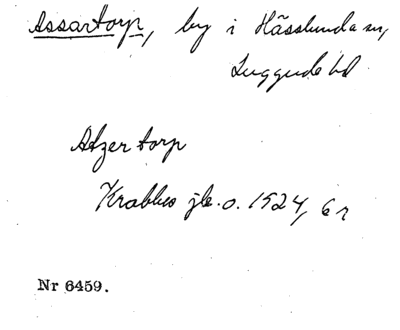 Assartorp, by i Hässlunda sn,
Luggude hd
Atzertorp
Krabbes jb.o. 1524, 6 r
Nr 6459.